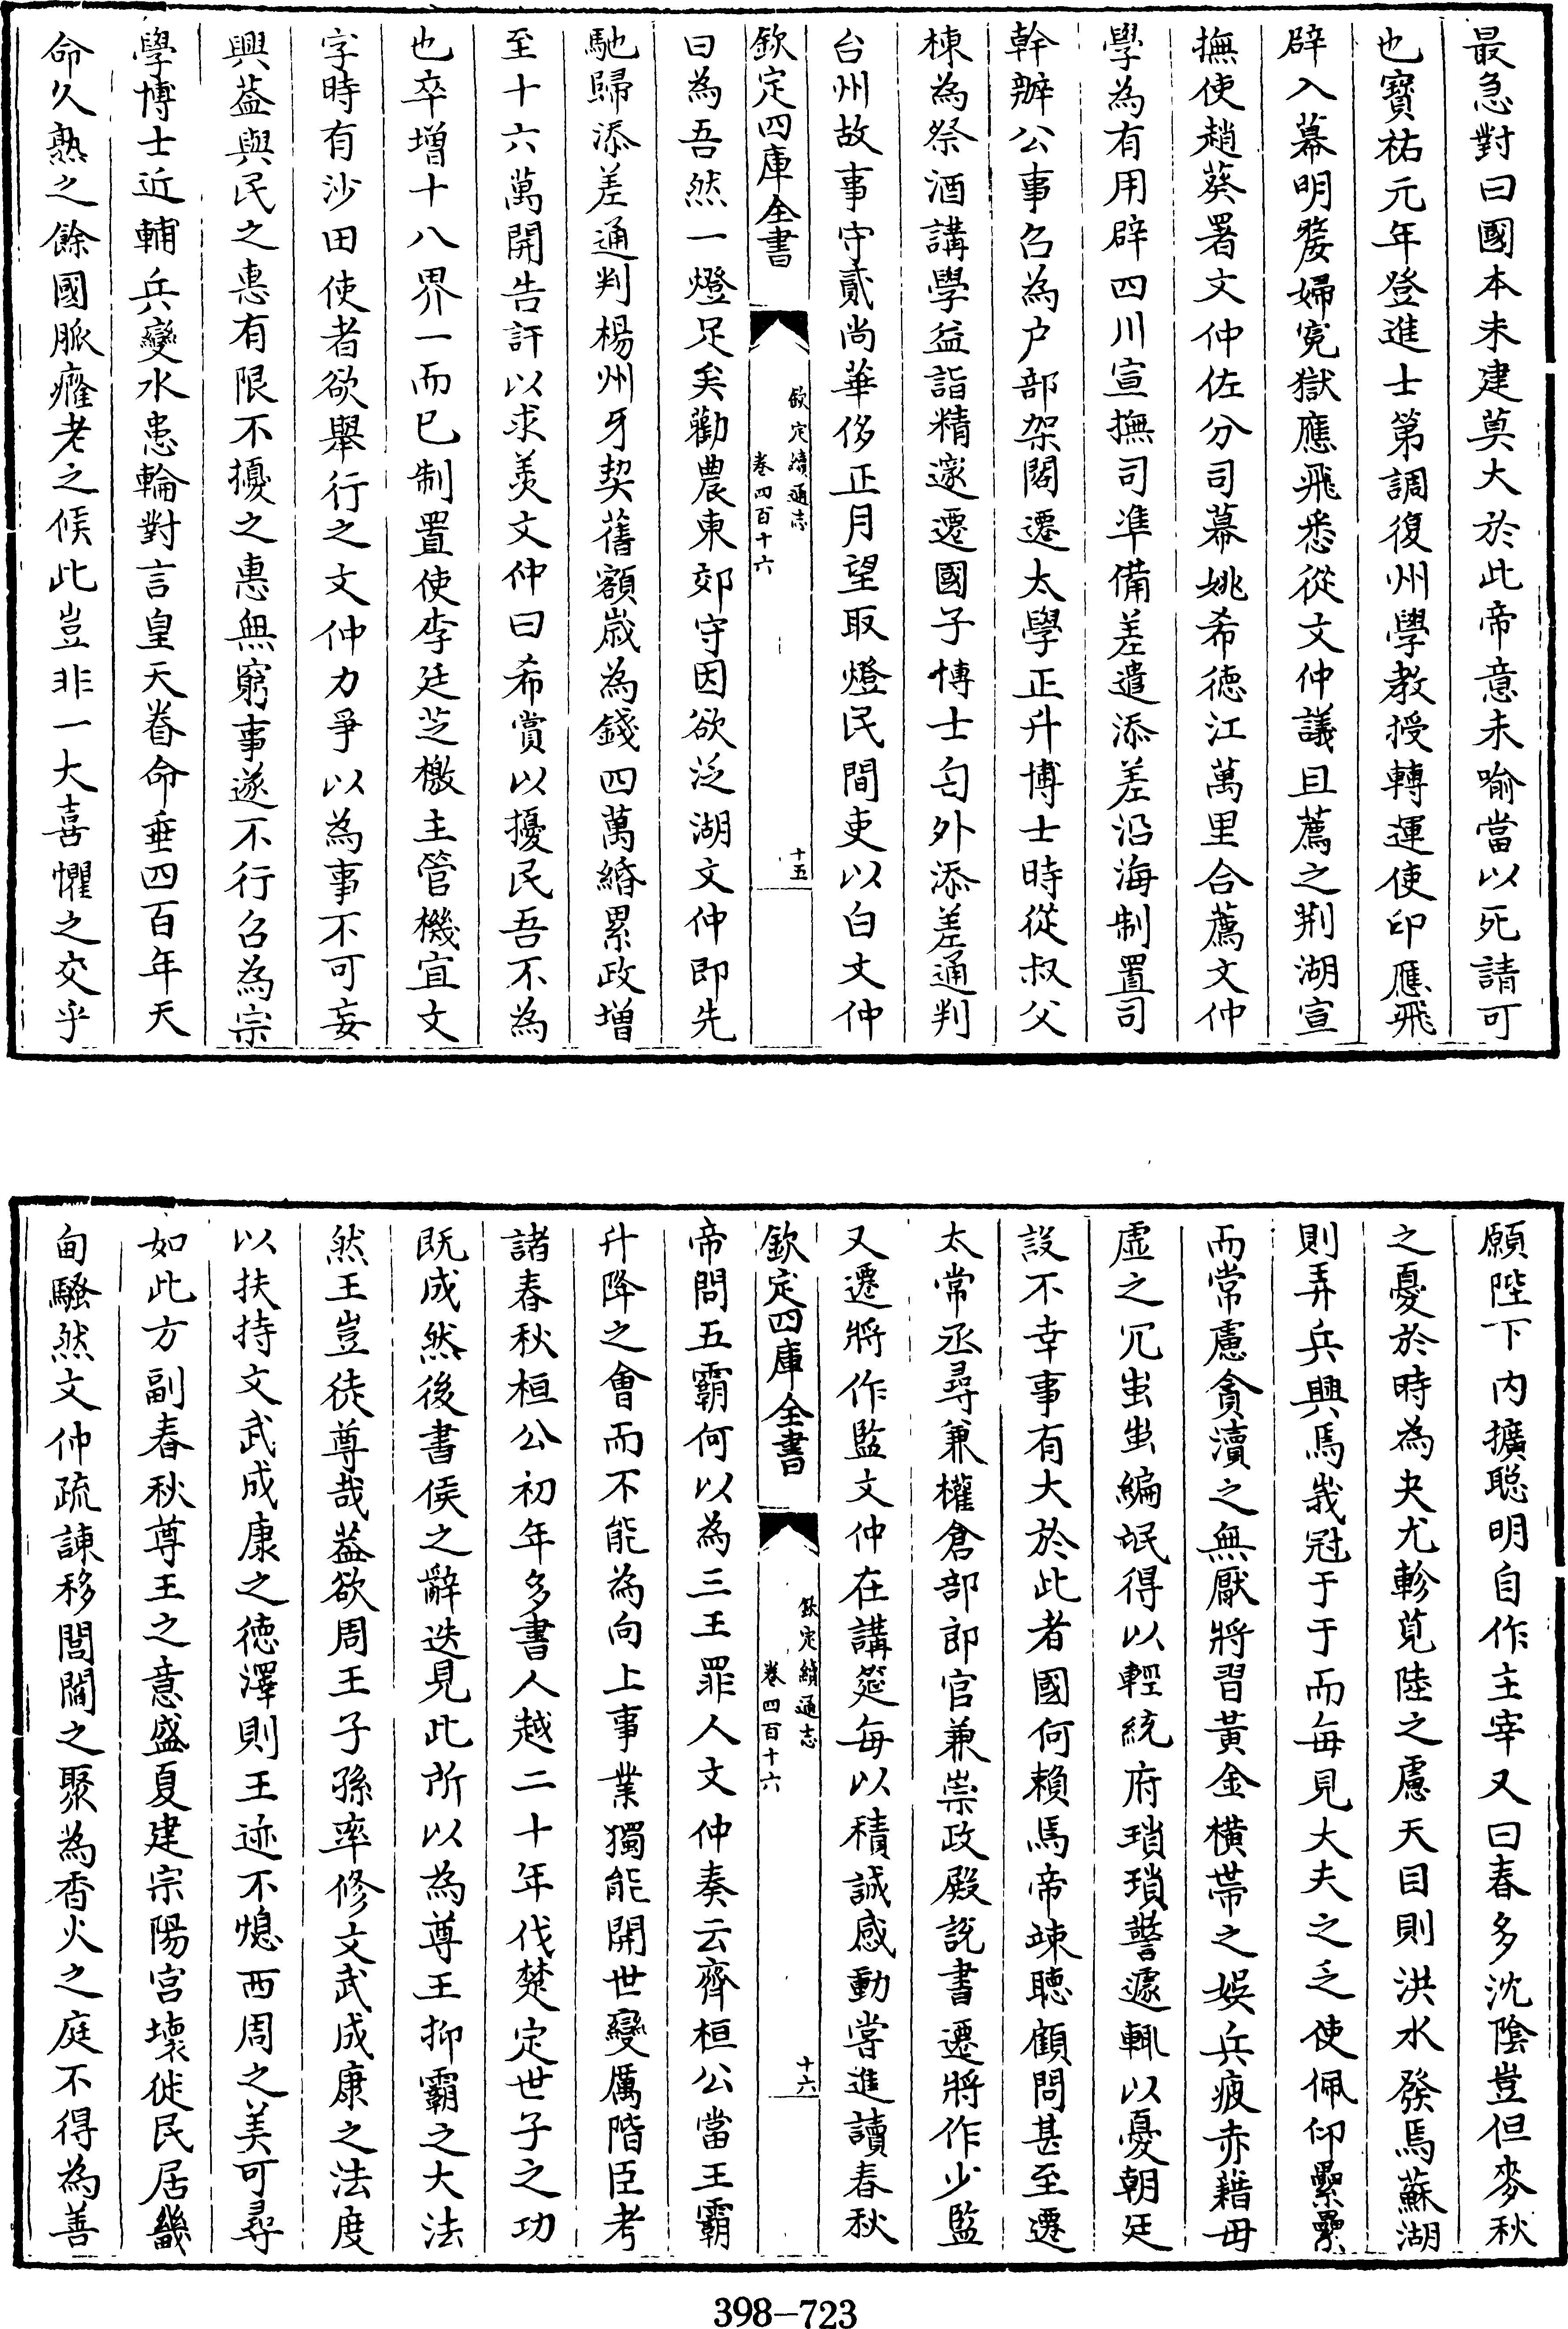 最急對曰國本未建莫大於此帝意未喻當以死請可
也寳祐元年登進士第調復州學教授轉運使印應飛
辟入幕明嫠婦寃獄應飛悉從文仲議且薦之荆湖宣
撫使趙葵署文仲佐分司幕姚希徳江萬里合薦文仲
學為有用辟四川宣撫司凖備差遣添差沿海制置司
幹辦公事召為户部架閣遷太學正升博士時從叔父
棟為祭酒講學益詣精邃遷國子博士匄外添差通判
台州故事守貳尚華侈正月望取燈民間吏以白文仲
欽定四庫全書
欽定續通志
卷四百十六
十五
曰為吾然一燈足矣勸農東郊守因欲泛湖文仲即先
馳歸添差通判楊州牙契舊額嵗為錢四萬緡累政增
至十六萬開告訐以求羡文仲曰希賞以擾民吾不為
也卒增十八界一而已制置使李廷芝檄主管機宜文
字時有沙田使者欲舉行之文仲力爭以為事不可妄
興葢與民之惠有限不擾之惠無窮事遂不行召為宗
學博士近輔兵變水患輪對言皇天眷命垂四百年天
命久熟之餘國脈癯老之候此豈非一大喜懼之交乎
願陛下内擴聪明自作主宰又曰春多沈隂豈但麥秋
之憂於時為夬尤軫莧陸之慮天目則洪水發焉蘇湖
則弄兵興焉峩冠于于而每見大夫之乏使佩印纍纍
而常慮貪瀆之無厭將習黄金横帶之娱兵疲赤籍毋
虚之冗蚩蚩編氓得以輕統府瑣瑣警遽輒以憂朝廷
設不幸事有大於此者國何賴焉帝竦聽顧問甚至遷
太常丞尋兼權倉部郎官兼崇政殿説書遷將作少監
又遷將作監文仲在講筵每以積誠感動嘗進讀春秋
欽定四庫全書
欽定續通志
卷四百十六
十六
帝問五霸何以為三王罪人文仲奏云齊桓公當王霸
升降之會而不能為向上事業獨能開世變厲階臣考
諸春秋桓公初年多書人越二十年伐楚定世子之功
既成然後書侯之辭迭見此所以為尊王抑霸之大法
然王豈徒尊哉葢欲周王子孫率修文武成康之法度
以扶持文武成康之徳澤則王迹不熄西周之美可尋
如此方副春秋尊王之意盛夏建宗陽宫壞徙民居畿
甸騷然文仲疏諫移閭閻之聚為香火之庭不得為善
398-723